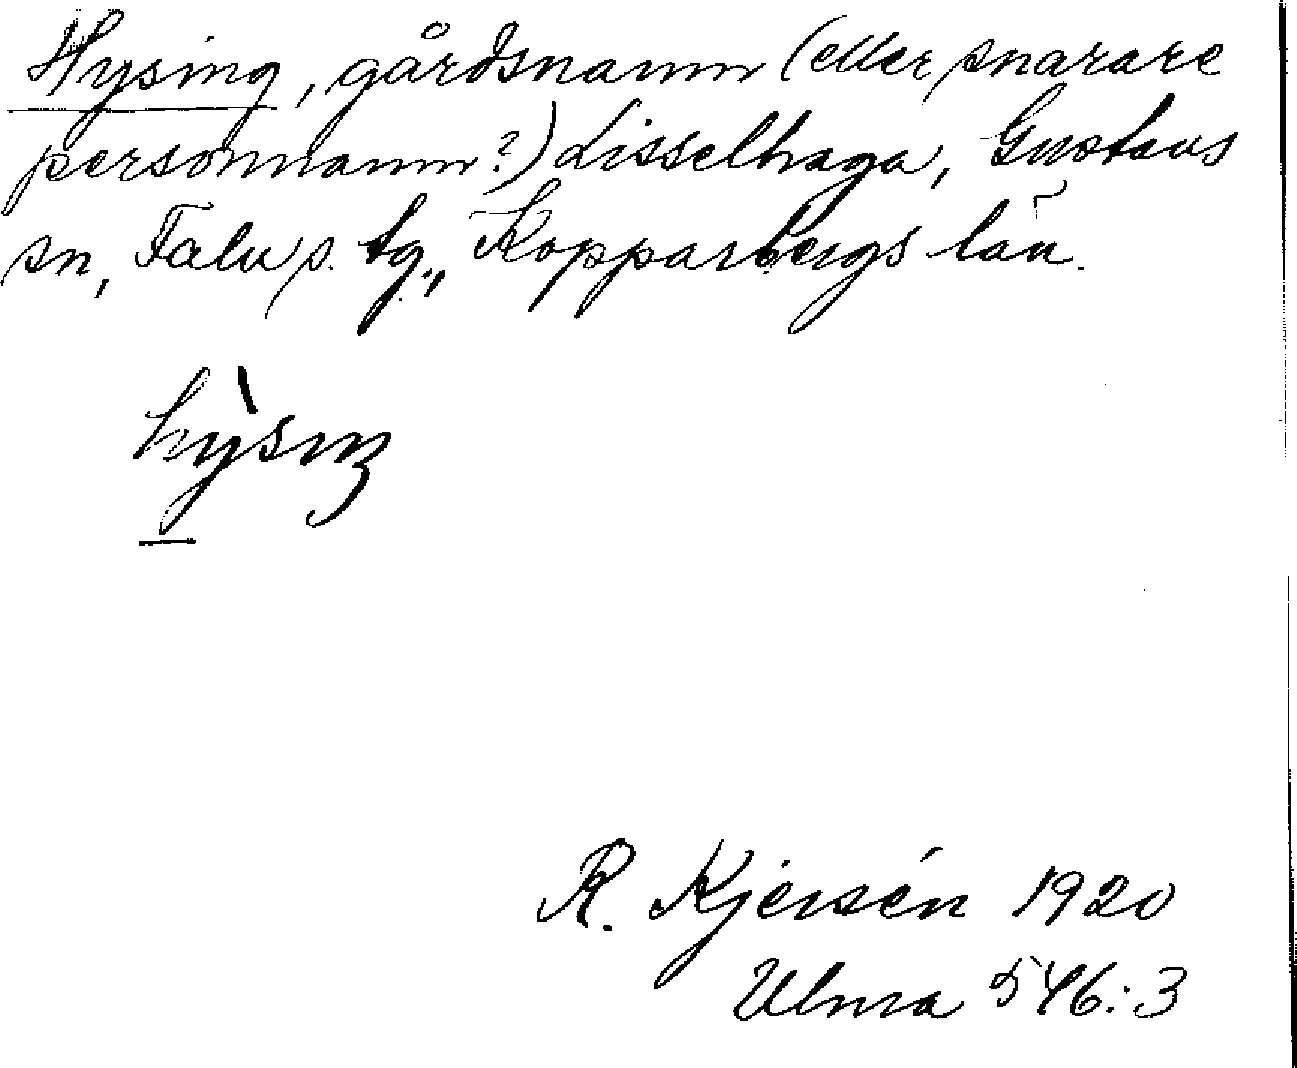 Hysing, gårdsnamn (eller snarare
personnamn?) Lisselhaga, Gustavs
sn, Falu s. tg., Kopparbergs län.
hy̆̀siŋ
R. Kjersén 1920
Ulma 546:3